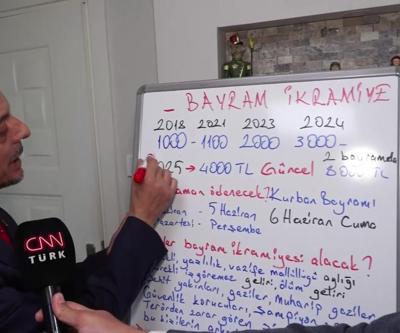 - BAYRAM İKRAMİYE
2018 2021 2023 2024
1000 - 1100 2000 3000 -
2 bayramda
2025 → 4000 TL Güncel 8000 TL
ödenecek? Kurban Bayramı
5 Haziran 6 Haziran Cuma
Perşembe
bayram ikramiyesi alacak?
yaşlılık, vazife malüllüğü aylığı
göremez geliri, ölüm geliri
yakınları, gaziler, Muharip gaziler
Güvenlik korucuları, şampiyon
Terörden zarar gören
CNN
TÜRK